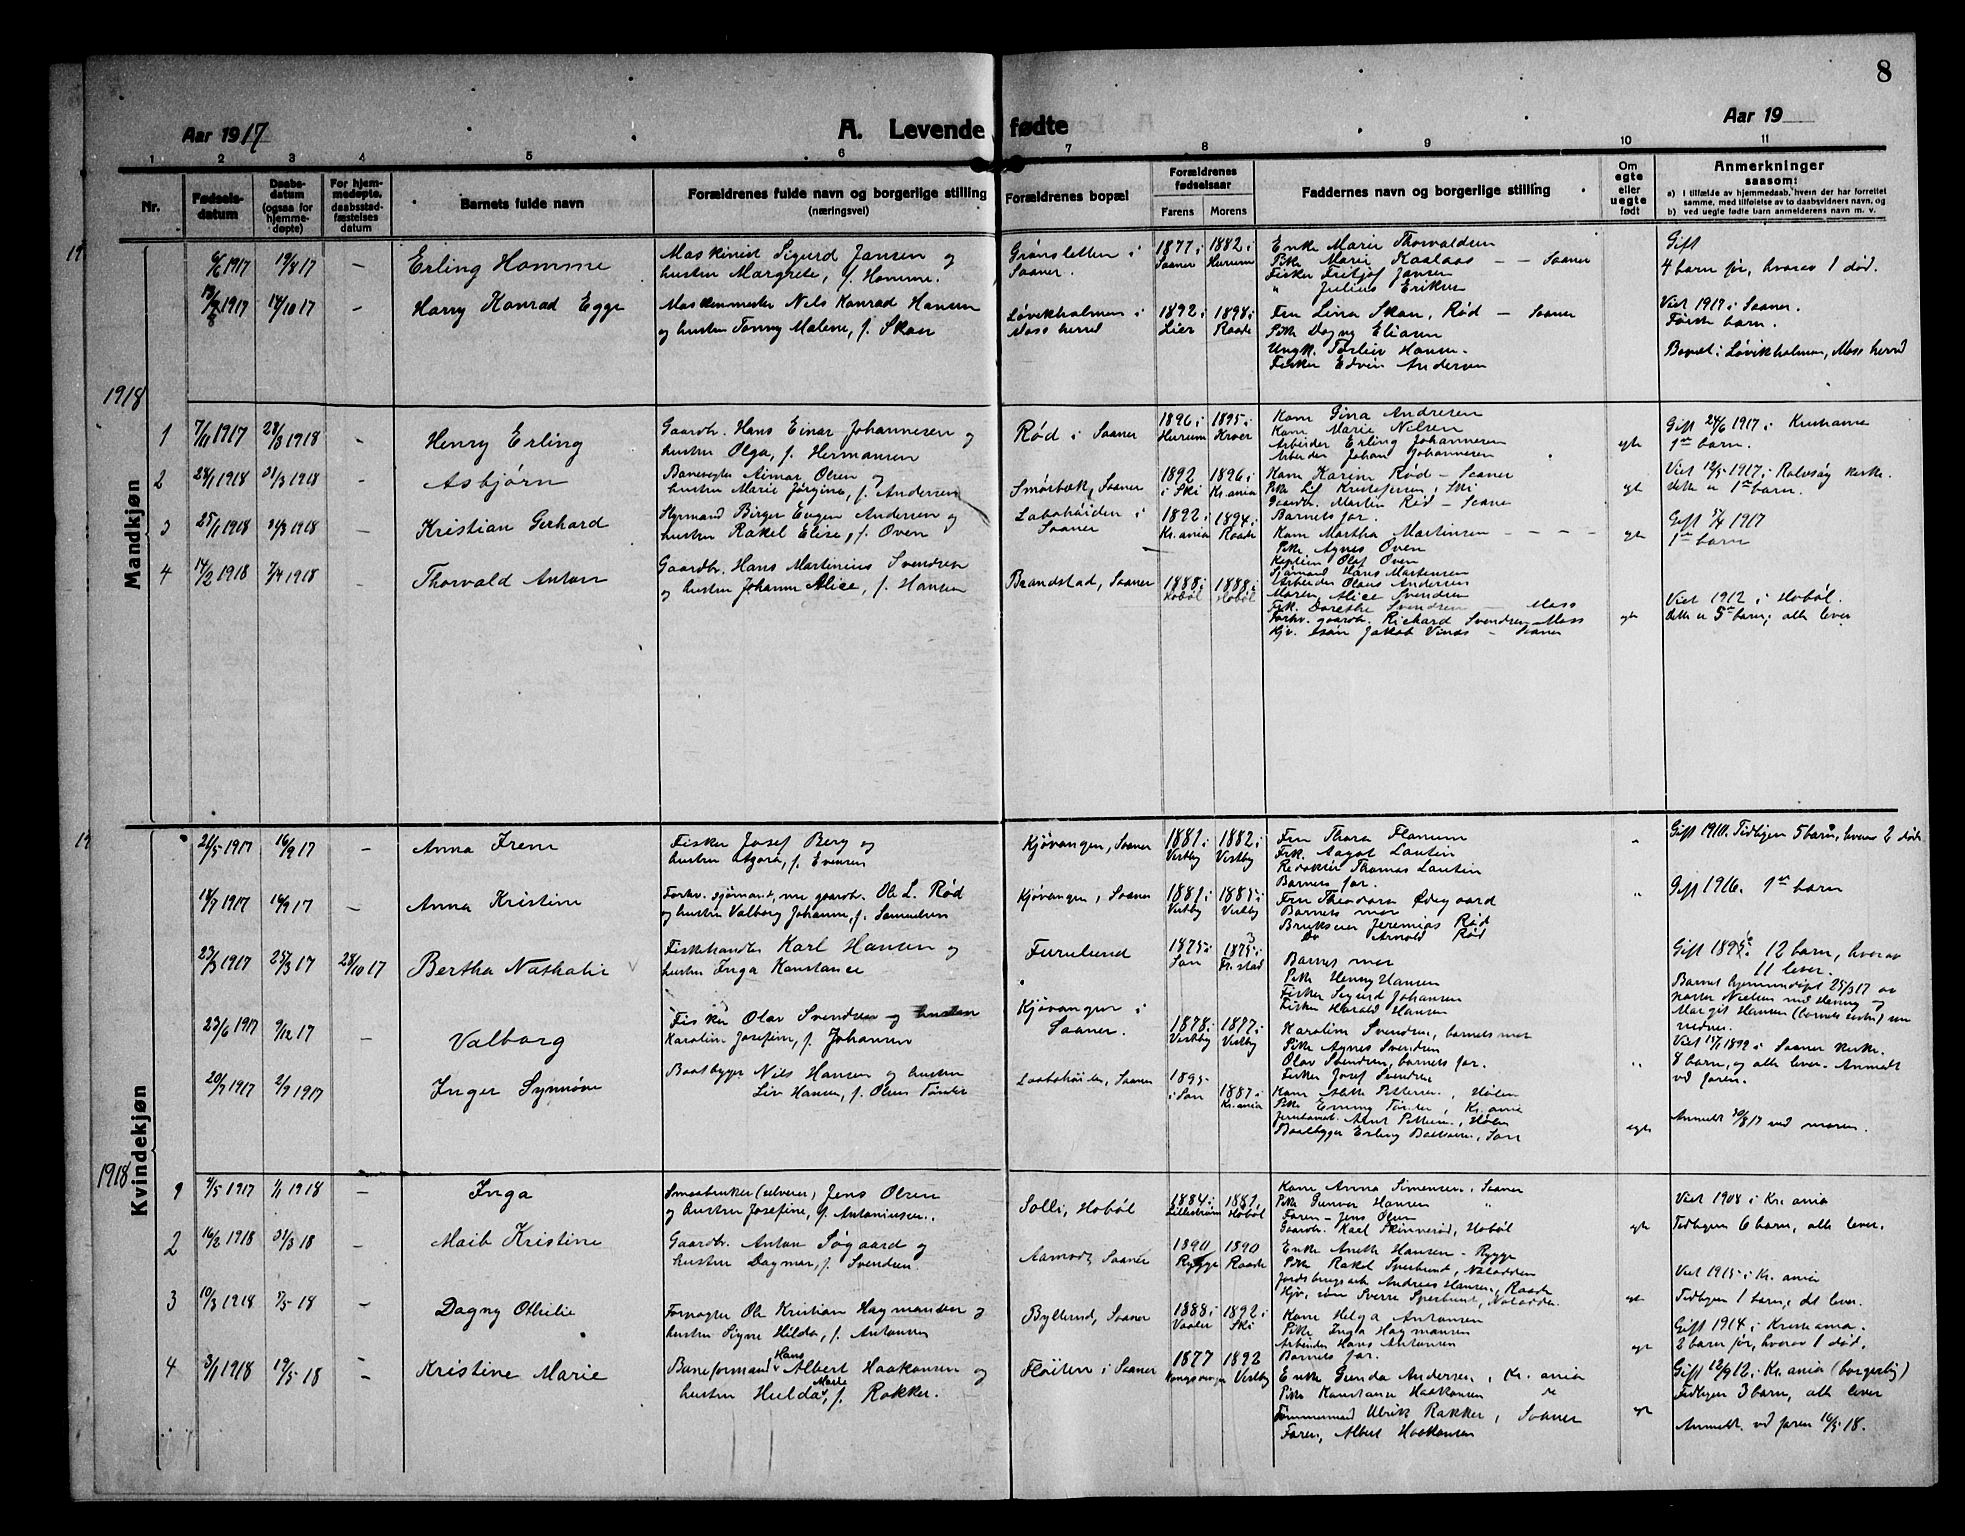 8
Aar 1917
A. Levende fødte
Aar 19
1 2 3 4 5 6 7 8 9 10 11
Nr.
Fødsels-
datum
Daabs-
datum
(ogsaa for
hjemme-
døpte)
For hjem-
medøpte,
daabsstad-
fæstelses
datum
Barnets fulde navn
Forældrenes fulde navn og borgerlige stilling
(næringsvei)
Forældrenes bopæl
Forældrenes
fødselsaar
Farens. Morens
Faddernes navn og borgerlige stilling
Om
egte
eller
uegte
født
Anmerkninger
saasom:
a) I tilfælde av hjemmedaab, hvem der har forrettet
samme, med tilføielse av to daabsvidners navn, og
b) ved uegte fødte barn anmelderens navn m. v.
Mandkjøn
6/6 1917 19/8 17 – Erling Homme
Maskinist Sigurd Jansen og
hustru Margrete, f. Homme.
Grønsletten i
Saaner.
1877 i
Saaner
1882 i
Hurum
Enke Marie Thorvaldsen
Pike Marie Kaalaas – – Saaner
Fisker Fritjof Jansen
" Julius Eriksen
Gift
4 barn før, hvorav 1 død.
1917 14/10 17 Harry Konrad Egge
Maskinmester Nils Konrad Hansen
og hustru Tonny Malene, f. Skau
Løvikholmen i
Moss herred
1892 i
Lier
1898 i
Raade
Fru Lina Skau, Rød – Saaner
Pike Dagny Eliasen
Ungk. Torleiv Hansen.
Fisker Edvin Andersen
Viet 1917 i Saaner.
Første barn.
Bopæl: Løvikholmen, Moss herred
1918
1 7/11 1917 28/3 1918 – Henry Erling
Gaardbr. Hans Einar Johannesen og
hustru Olga, f. Hermansen
Rød i Saaner
1896 i
Hurum
1895 i
Kroer
Kone Gina Andresen
Kone Marie Nilsen
Arbeider Erling Johannesen
Arbeider Johan Johannesen
egte
Gift 24/6 1917 i Kristiania
1ste barn.
2 24/1 1918 31/3 1918 – Asbjørn
Banevogter Aimar Olsen og
hustru Marie Jørgine, f. Andersen
Smørbæk, Saaner
1892
i Ski
1896 i
Kr.ania
Kone Karine Rød – Saaner
Pike Lif Kristofersen, Ski
Gaardbr. Martin Rød – Saaner
Barnets far.
egte
Viet 12/5 1917 i Rolvsøy kirke.
dette er 1ste barn.
3 25/1 1918 31/3 1918 – Kristian Gerhard
Styrmand Birger Eugen Andersen og
hustru Rakel Elise, f. Oven
Labohøiden i
Saaner
1892 i
Kr.ania
1894 i
Raade
Kone Martha Martinsen – – – –
Pike Agnes Oven
Kaptein Olaf Oven
Sjømand Hans Martensen
Arbeider Olaus Andersen
egte
Gift 5/4 1917
1ste barn
4 14/2 1918 7/4 1918 – Thorvald Anton
Gaardbr. Hans Martinius Svendsen
og hustru Johanne Alice, f. Hansen
Brandstad, Saaner
1888 i
Hobøl
1888 i
Hobøl
Moren, Alice Svendsen
Frk. Dorethe Svendsen – Moss
Forhv. gaardbr. Richard Svendsen – Moss
Gjv. søn Jakob Vinas – Saaner
egte
Viet 1912 i Hobøl.
Dette er 5te barn; alle lever
Kvindekjøn
21/5 1917 16/9 17 Anna Irene
Fisker Josef Berg og
hustru Agora, f. Evensen
Kjøvangen, Saaner
1881 i
Vestby
1882 i
Vestby
Fru Thora Flanum
Frk. Aagot Lautin
Redaktør Thomas Lautin
Barnets far.
"
Gift 1910. Tidligere 5 barn, hvorav 2 døde
18/7 1917 16/9 17 – Anna Kristine
Forhv. sjømand, nu gaardbr. Ole L. Rød
og hustru Valborg Johanne, f. Samuelsen
Kjøvangen, Saaner
1881 i
Vestby
1885 i
Vestby
Fru Theodora Ødegaard
Barnets mor
Brukseier Jeremias Rød
Do Arnold Rød
"
Gift 1916. 1ste barn
23/3 1917 25/3 17 28/10 17 Bertha Nathalie
Fiskehandler Karl Hansen og
hustru Inga Konstance
Furulund
1875 i
Son
1875 i
Fr.stad
Barnets mor
Pike Henny Hansen
Fisker Sigurd Johansen
Fisker Harald Hansen
Gift 1895. 12 barn, hvorav
11 lever.
Barnet hjemmedøpt 25/3 17 av
Margit Hansen (barnets søster) som
vidner.
23/6 1917 9/12 17 – Valborg
Fisker Olav Svendsen og hustru
Karoline Josefine, f. Johansen
Kjøvangen i
Saaner.
1878 i
Vestby
1877 i
Vestby
Karoline Svendsen, barnets mor
Pike Agnes Svendsen
Olav Svendsen, barnets far.
Fisker Josef Svendsen
"
Viet 15/1 1899 i Saaner kirke.
8 barn, og alle lever. Anmeldt
ved faren.
20/7 1917 2/9 1917 Inger Synnøve
Baatbygger Nils Hansen og hustru
Liv Hansen, f. Olsen Tønder
Laabohøiden, Saaner
1895
i Son
1887 i
Kr.ania
Kone Aleth Pettersen, Hølen
Pike Emmy Tønder, Kr.ania
Jernbanebt. Arnt Pettersen, Hølen
Baatbygger Erling Boettcher, Son
egte
Anmeldt 30/8 17 ved moren.
1918
1 9/5 1917 1/1 1918 – Inga
Smaabruker (selveier) Jens Olsen
og hustru Josefine, f. Antoniusen.
Solli, Hobøl
1884 i
Lillestrøm
1881 i
Hobøl
Kone Anna Simensen, Saaner
Pike Gunvor Hansen "
Faren – Jens Olsen
Gaardbr. Karl Skinnerød, Hobøl
egte
Viet 1908 i Kr.ania
Tidligere 6 barn, alle lever.
2 16/2 1918 31/3 18 – Maib Kristine
Gaardbr. Anton Søgaard og
hustru Dagmar, f. Svendsen
Aamodt, Saaner
1890
Rygge
1890
Raade
Enke Aneth Hansen – Rygge
Pike Rakel Sperbund, Notodden
Jordbrugsarb. Andreas Hansen, Raade
Gjv. søn Sverre Sperbund, Notodden
egte
Viet 1915 i Kr.ania
Tidligere 1 barn, det lever.
3 10/3 1918 9/5 18 – Dagny Othilie
Forvogter Ole Kristian Haymanden og
hustru Signe Hilda, f. Antonsen
Byllund, Saaner
1888 i
Vaaler
1892 i
Ski
Kone Helga Antonsen
Pike Ingla Haymansen
Arbeider Hans Antonsen
Barnets far.
egte
Gift 1914 i Kristiania.
2 barn før, hvorav 1 død.
4 3/1 1918 19/5 18 – Kristine Marie
Baneformand Hans Albert Haakonsen og
hustru Hulda Marie, f. Rakker.
Fløiten i Saaner
1877
Kongsvinger
1892
Vestby
Enke Gunda Andersen, Kr.ania
Pike Konstanse Haakonsen do
Tømmermand Ulrik Rakker, Saaner
Faren, Albert Haakonsen
egte
Gift 12/9 12 i Kr.ania (borgerlig)
Tidligere 3 barn, alle lever
Anmeldt ved faren 16/5 18.